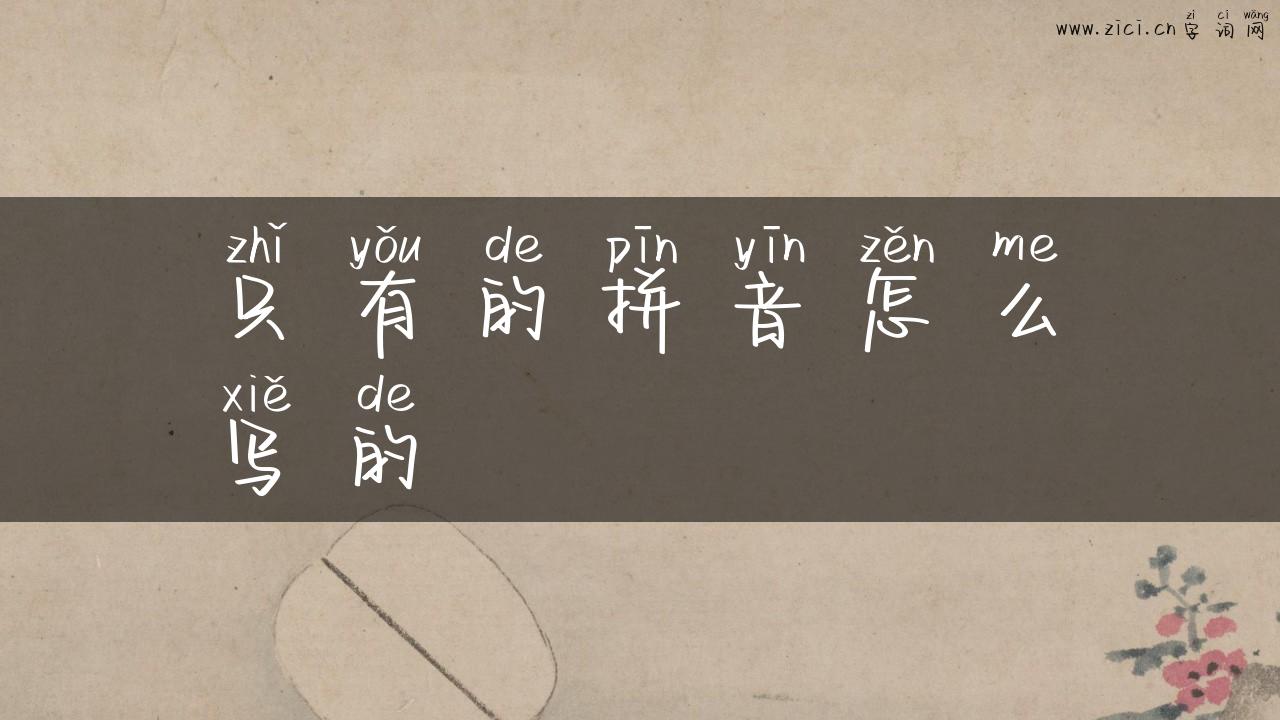 zì cí wǎng
www.zici.cn 字 词 网
zhǐ yǒu de pīn yīn zěn me
只 有 的 拼 音 怎 么
xiě de
写 的